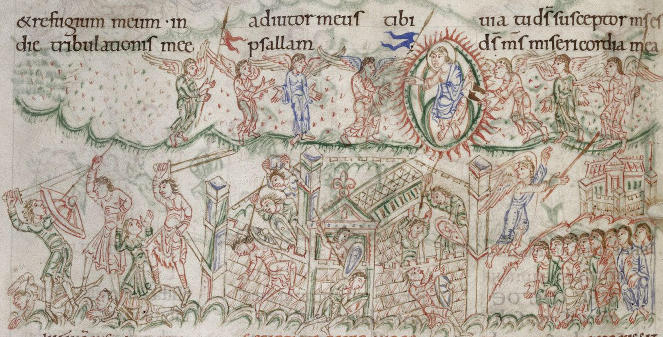 & refugium meum · in adiutor meus tibi uia tu ds susceptor ms es
die tribulationis mee psallam ds ms misericordia mea